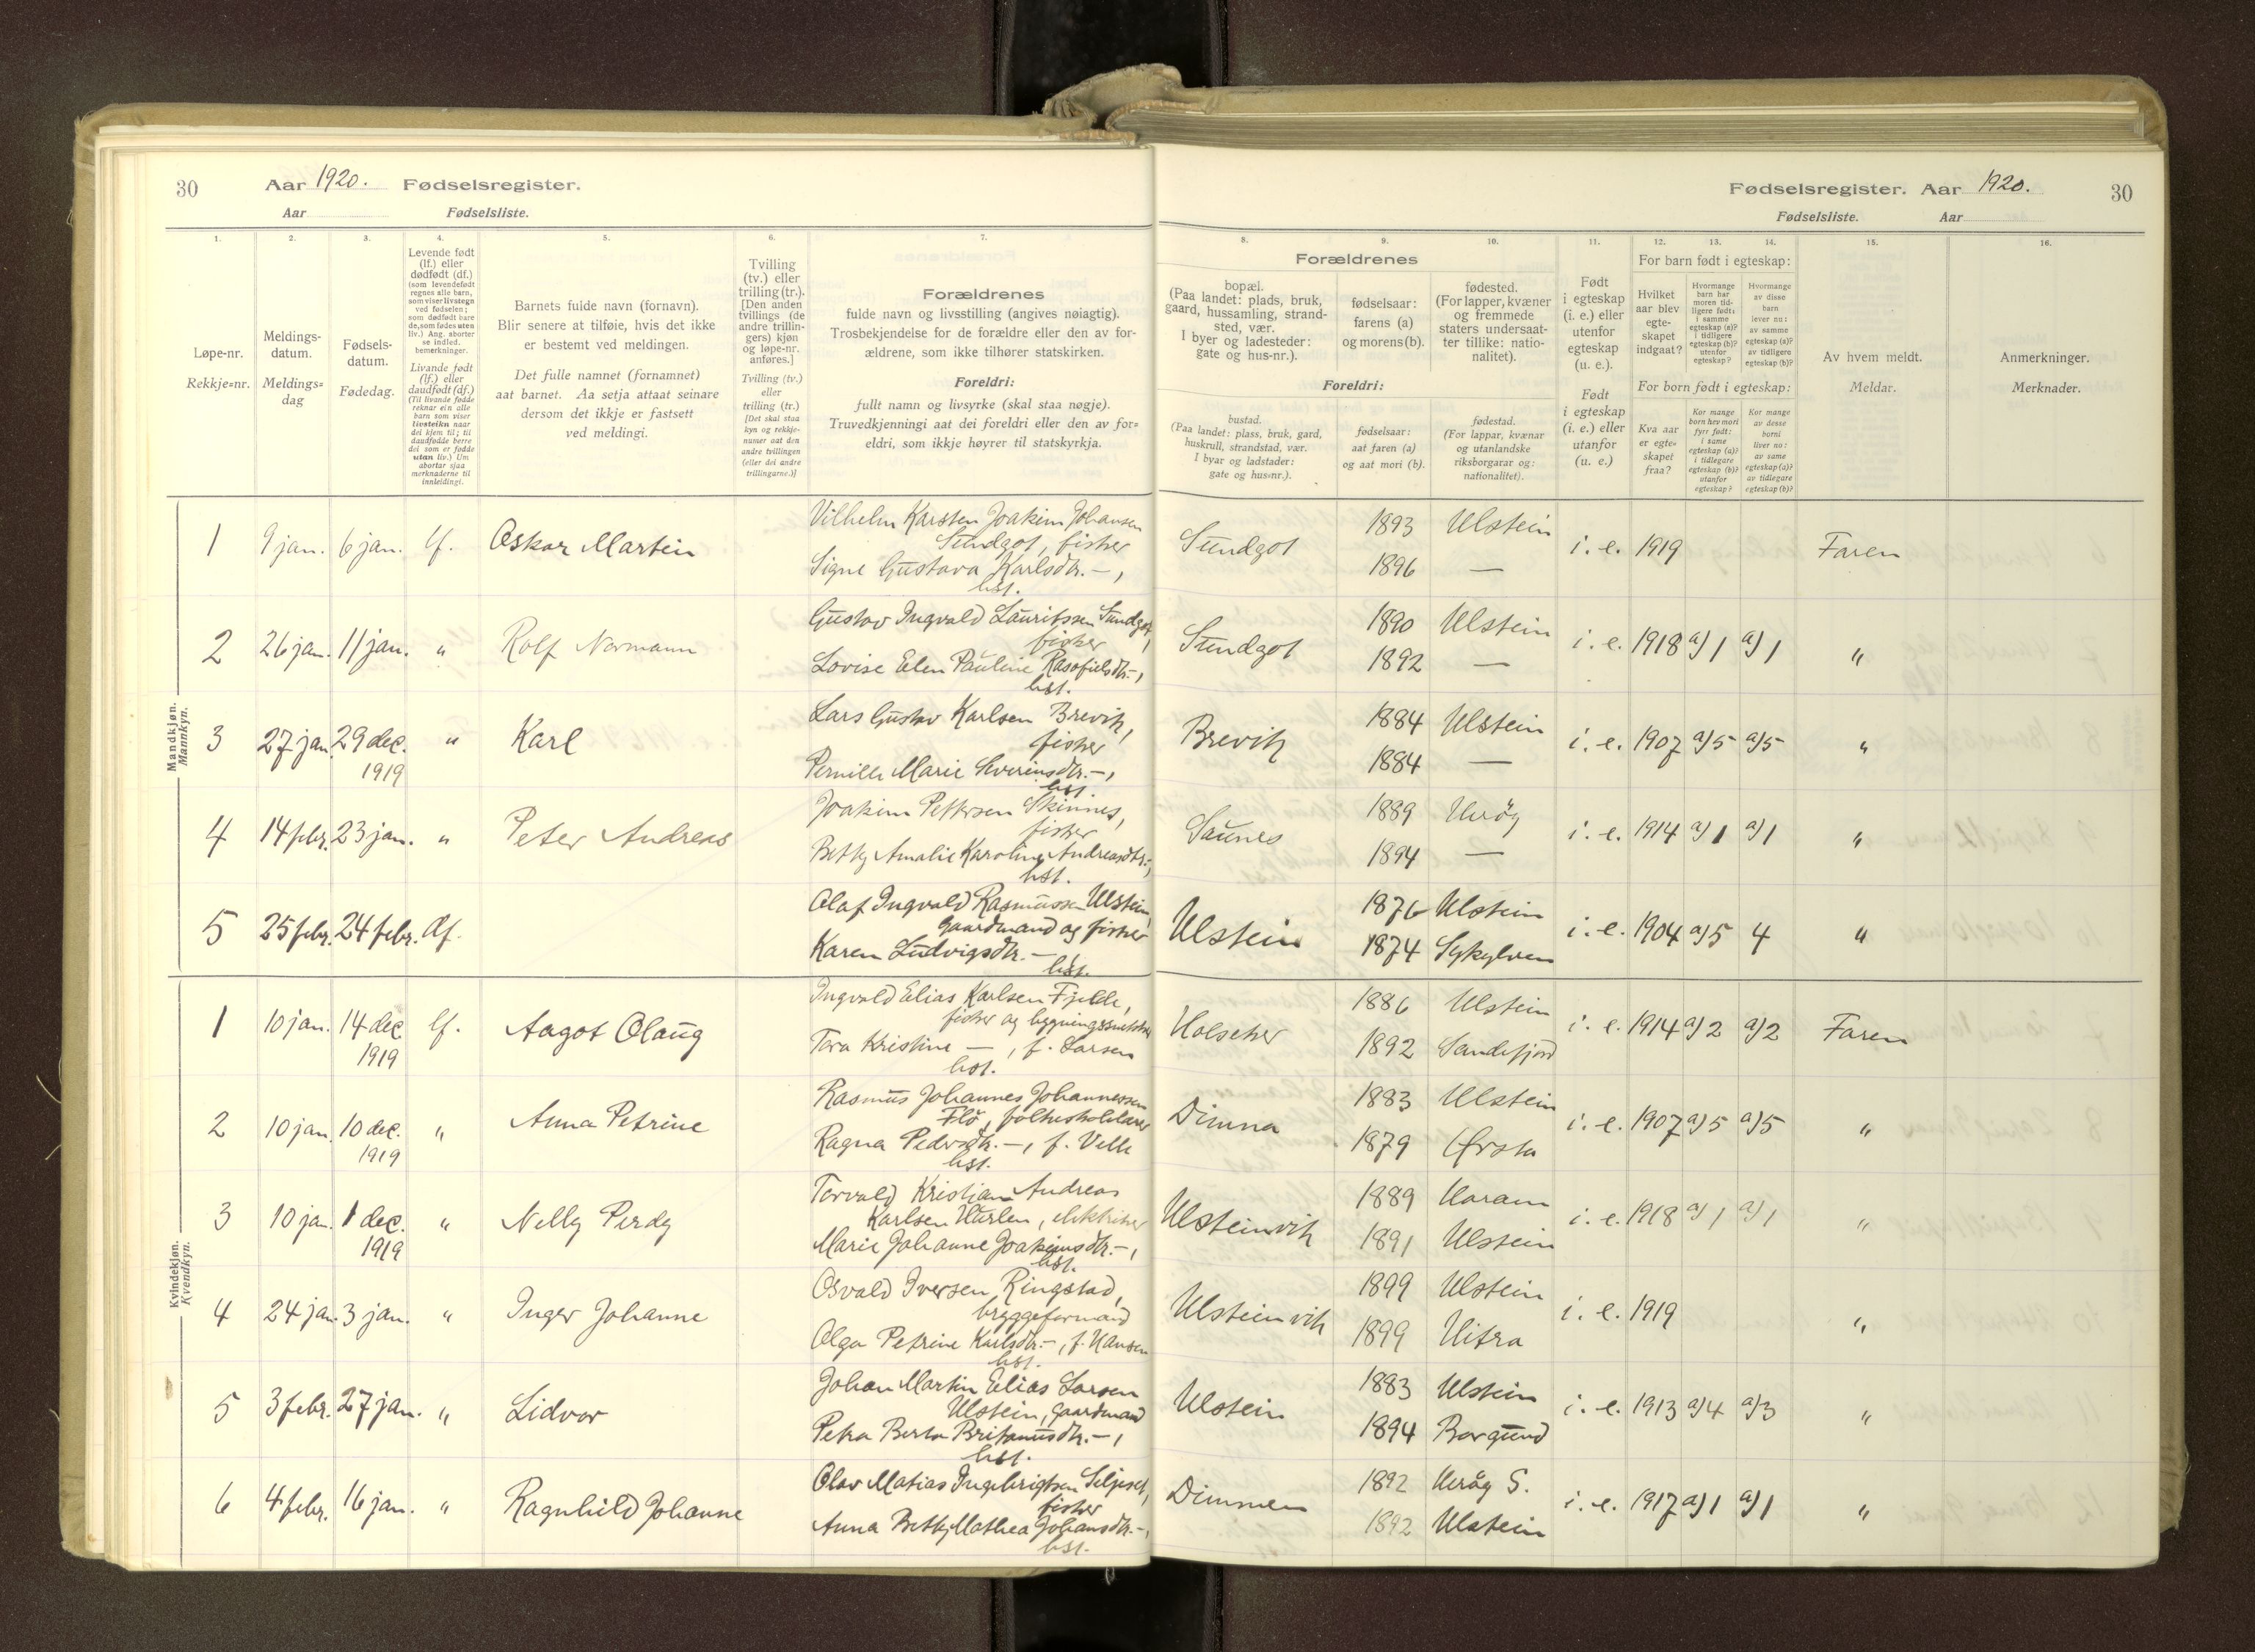 30 Aar 1920. Fødselsregister.
Aar Fødselsliste.
Fødselsregister. Aar 1920. 30
Fødselsliste. Aar
1.
Løpe-nr.
Rekkje=nr.
2.
Meldings-
datum.
Meldings=
dag
3.
Fødsels-
datum.
Fødedag.
4.
Levende født
(lf.) eller
dødfødt (df.)
(som levendefødt
regnes alle barn,
som viser livstegn
ved fødselen;
som dødfødt bare
de, som fødes uten
liv.) Ang. aborter
se indled.
bemerkninger.
Livande født
(lf.) eller
daudfødt (df.)
(Til livande fødde
reknar ein alle
barn som viser
livsteikn naar
dei kjem til; til
daudfødde berre
dei som er fødde
utan liv.) Um
abortar sjaa
merknaderne til
innleidingi.
5.
Barnets fulde navn (fornavn).
Blir senere at tilføie, hvis det ikke
er bestemt ved meldingen.
Det fulle namnet (fornamnet)
aat barnet. Aa setja attaat seinare
dersom det ikkje er fastsett
ved meldingi.
6.
Tvilling
(tv.) eller
trilling (tr.).
[Den anden
tvillings (de
andre trillin-
gers) kjøn
og løpe-nr.
anføres.]
Tvilling (tv.)
eller
trilling (tr.)
[Det skal staa
kyn og rekkje-
numer aat den
andre tvillingen
(eller dei andre
trillingarne.)]
7.
Forældrenes
fulde navn og livsstilling (angives nøiagtig).
Trosbekjendelse for de forældre eller den av for-
ældrene, som ikke tilhører statskirken.
Foreldri:
fullt namn og livsyrke (skal staa nøgje).
Truvedkjenningi aat dei foreldri eller den av for=
eldri, som ikkje høyrer til statskyrkja.
Forældrenes
8.
bopæl.
(Paa landet: plads, bruk,
gaard, hussamling, strand-
sted, vær.
I byer og ladesteder:
gate og hus-nr.).
9.
fødselsaar:
farens (a)
og morens (b).
10.
fødested.
(For lapper, kvæner
og fremmede
staters undersaat-
ter tillike: natio-
nalitet).
Foreldri:
bustad.
(Paa landet: plass, bruk, gard,
huskrull, strandstad, vær.
I byar og ladstader:
gate og hus=nr.).
fødselsaar:
aat faren (a)
og aat mori (b).
fødestad.
(For lappar, kvænar
og utanlandske
riksborgarar og:
nationalitet).
11.
Født
i egteskap
(i. e.) eller
utenfor
egteskap
(u. e.).
Født
i egteskap
(i. e.) eller
utanfor
(u. e.)
12. 13. 14.
For barn født i egteskap:
Hvilket
aar blev
egte-
skapet
indgaat?
Hvormange
barn har
moren tid-
ligere født:
i samme
egteskap (a)?
i tidligere
egteskap (b)?
utenfor
egteskap?
Hvormange
av disse
barn
lever nu:
av samme
egteskap (a)?
av tidligere
egteskap (b)?
For born født i egteskap:
Kva aar
er egte=
skapet
fraa?
Kor mange
born hev mori
fyrr født:
i same
egteskap (a)?
i tidlegare
egteskap (b)?
utanfor
egteskap?
Kor mange
av desse
borni
liver no:
av same
egteskap (a)?
av tidlegare
egteskap (b)?
15.
Av hvem meldt.
Meldar.
16.
Anmerkninger.
Merknader.
Mandkjøn.
Mannkyn.
1 9 jan. 6 jan. lf. Oskar Martein
Vilhelm Karsten Joakim Johansen
Sundgot, fisker
Signe Gustava Karlsdtr. —,
hst.
Sundgot 1893 Ulstein i. e. 1919 Faren
1896 —
2 26 jan. 11 jan. " Rolf Normann
Gustav Ingvald Lauritssen Sundgot,
fisker
Lovise Elen Pauline —,
hst.
Sundgot 1890 Ulstein i. e. 1918 a/1 a/1 "
1892 —
3 27 jan. 29 dec. 1919 " Karl
Lars Gustav Karlsen Brevik,
fisker
Pernille Marie Severinsdtr. —,
hst.
Brevik 1884 Ulstein i. e. 1907 a/5 a/5 "
1884 —
4 14 febr. 23 jan. " Peter Andreas
Joakim Pettersen Skinnes,
fisker
Betty Amalie Karoline Andreasdtr. —,
hst.
Saunes 1889 Herøy i. e. 1914 a/1 a/1 "
1894 —
5 25 febr. 24 febr. df.
Olaf Ingvald Rasmussen Ulstein,
gaardmand og fisker
Karen Ludvigsdtr. —,
hst.
Ulstein 1876 Ulstein i. e. 1904 a/5 4 "
1874 Sykylven
Kvindekjøn.
Kvendkyn.
1 10 jan. 14 dec. 1919 lf. Aagot Olaug
Ingvald Elias Karlsen Fjelde,
fisker og bygningssnekker
Tora Kristine —, f. Larsen
hst.
Holseker 1886 Ulstein i. e. 1914 a/2 a/2 Faren
1892 Sandefjord
2 10 jan. 10 dec. 1919 " Anna Petrine
Rasmus Johannes Johannessen
Flø, folkeskolelærer
Ragna Pedersdtr. —, f. Velle
hst.
Dimna 1883 Ulstein i. e. 1907 a/5 a/5 "
1879 Ørsta
3 10 jan. 1 dec. 1919 " Nelly Perdy
Torvald Kristian Andreas
Karlsen Hurlen, elektriker
Marie Johanne Joakimsdtr. —,
hst.
Ulsteinvik 1889 Haram i. e. 1918 a/1 a/1 "
1891 Ulstein
4 24 jan. 3 jan. " Inger Johanne
Osvald Iversen Ringstad,
bryggeformand
Olga Petrine Karlsdtr. —, f. Hansen
hst.
Ulsteinvik 1899 Ulstein i. e. 1919 "
1899 Hitra
5 3 febr. 27 jan. " Lidvor
Johan Martin Elias Larsen
Ulstein, gaardmand
Petra Berta Britanusdtr. —,
hst.
Ulstein 1883 Ulstein i. e. 1913 a/4 a/3 "
1894 Borgund
6 4 febr. 16 jan. " Ragnhild Johanne
Olav Matias Ingebrigtsen Seljeset,
fisker
Anna Betty Mathea Johansdtr. —,
hst.
Dimmen 1892 Herøy S. i. e. 1917 a/1 a/1 "
1892 Ulstein